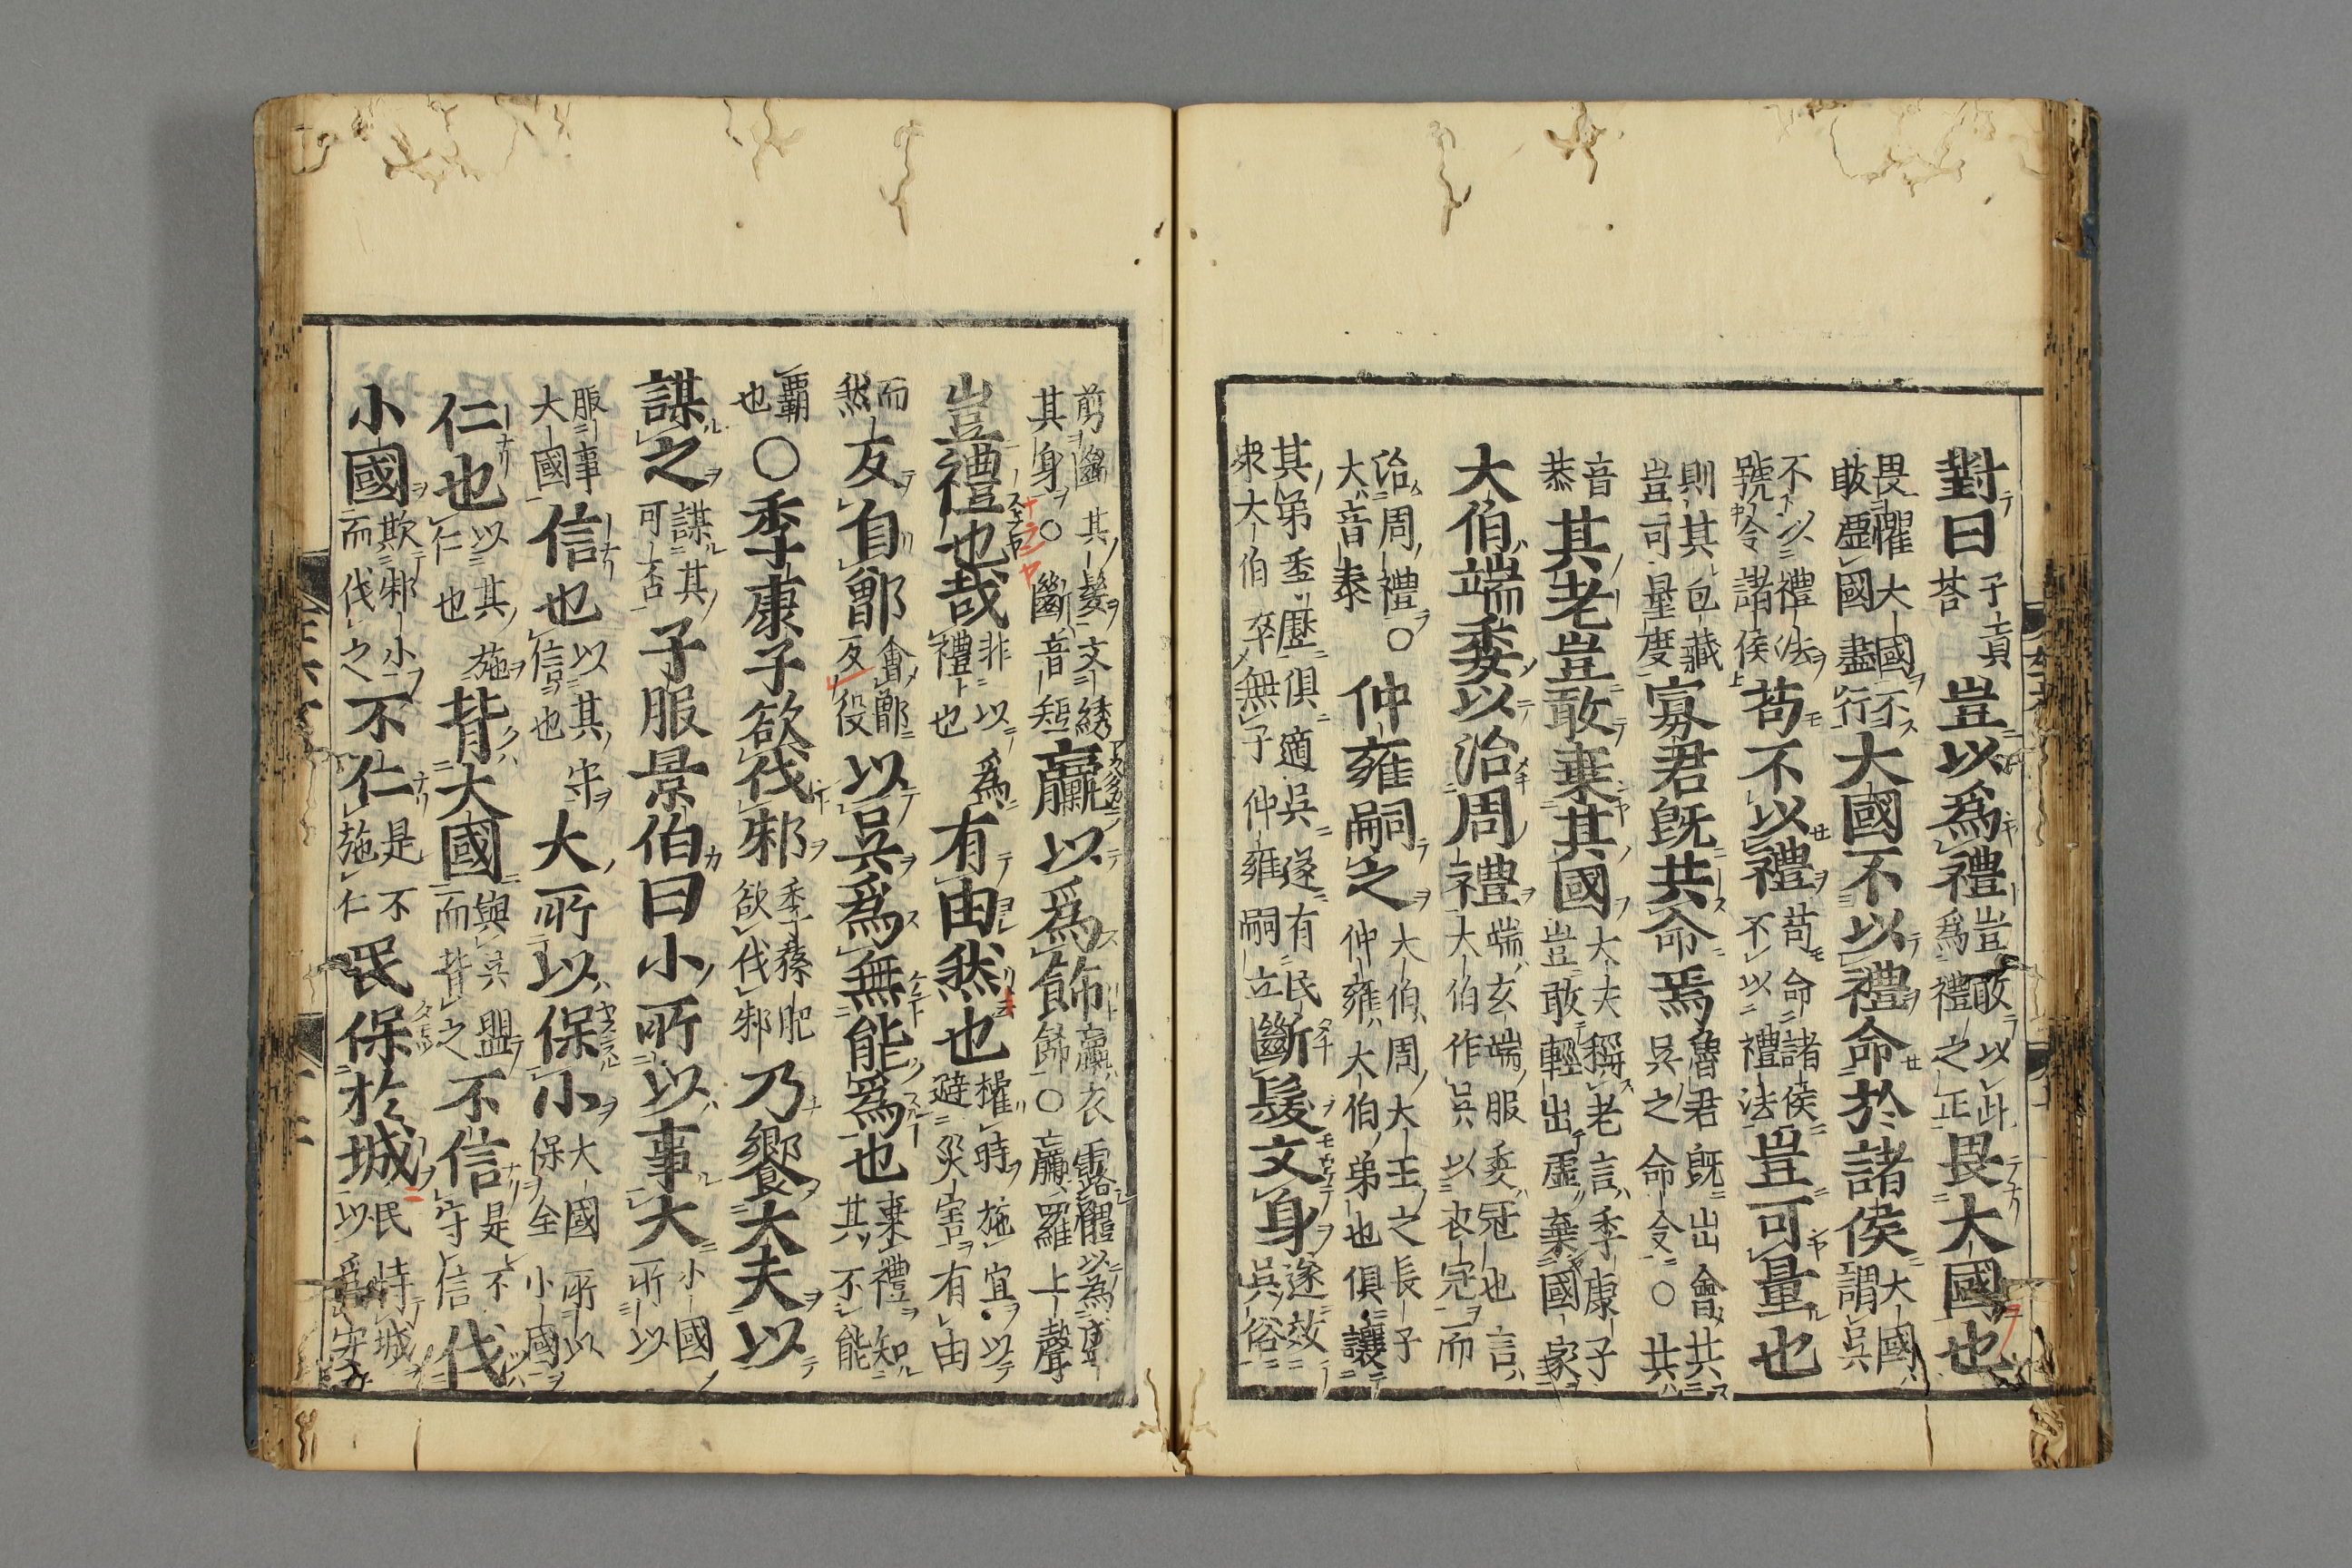 對曰子貢荅豈以爲禮豈敢以此爲禮之正畏大國也
畏懼大國不敢虛國盡行大國不以禮命於諸侯大國謂吳
不以禮法號令諸侯苟不以禮苟不以禮法命諸侯豈可量也
則其包藏豈可量度寡君旣共命焉魯君旣出會共吳之命令○共
音恭其老豈敢棄其國大夫稱老言季康子豈敢輕出虛棄國家
大伯端委以治周禮端玄端服委冠也言大伯作吳以衣冠而
治周禮○大音泰仲雍嗣之大伯周大王之長子仲雍大伯弟也俱讓
其弟季歷俱適吳遂有民衆大伯卒無子仲雍嗣立斷髮文身遂效吳俗
剪斷其髮文綉其身○斷音短臝以爲飾臝衣露體以為美飾○臝羅上聲
豈禮也哉非以爲禮也有由然也權時施宜以避災害有由
而然反自鄫會鄫反役以吳爲無能爲也棄禮知其不能
覇也○季康子欲伐邾季孫肥欲伐邾乃饗大夫以
謀之謀其可否子服景伯曰小所以事大小國所以
服事大國信也以其信也守大所以保小大國所以保全小國
仁也以其仁也施背大國與吳盟而背之不信是不守信伐
小國欺邾小而伐之不仁是不施仁民保於城民恃城以爲安